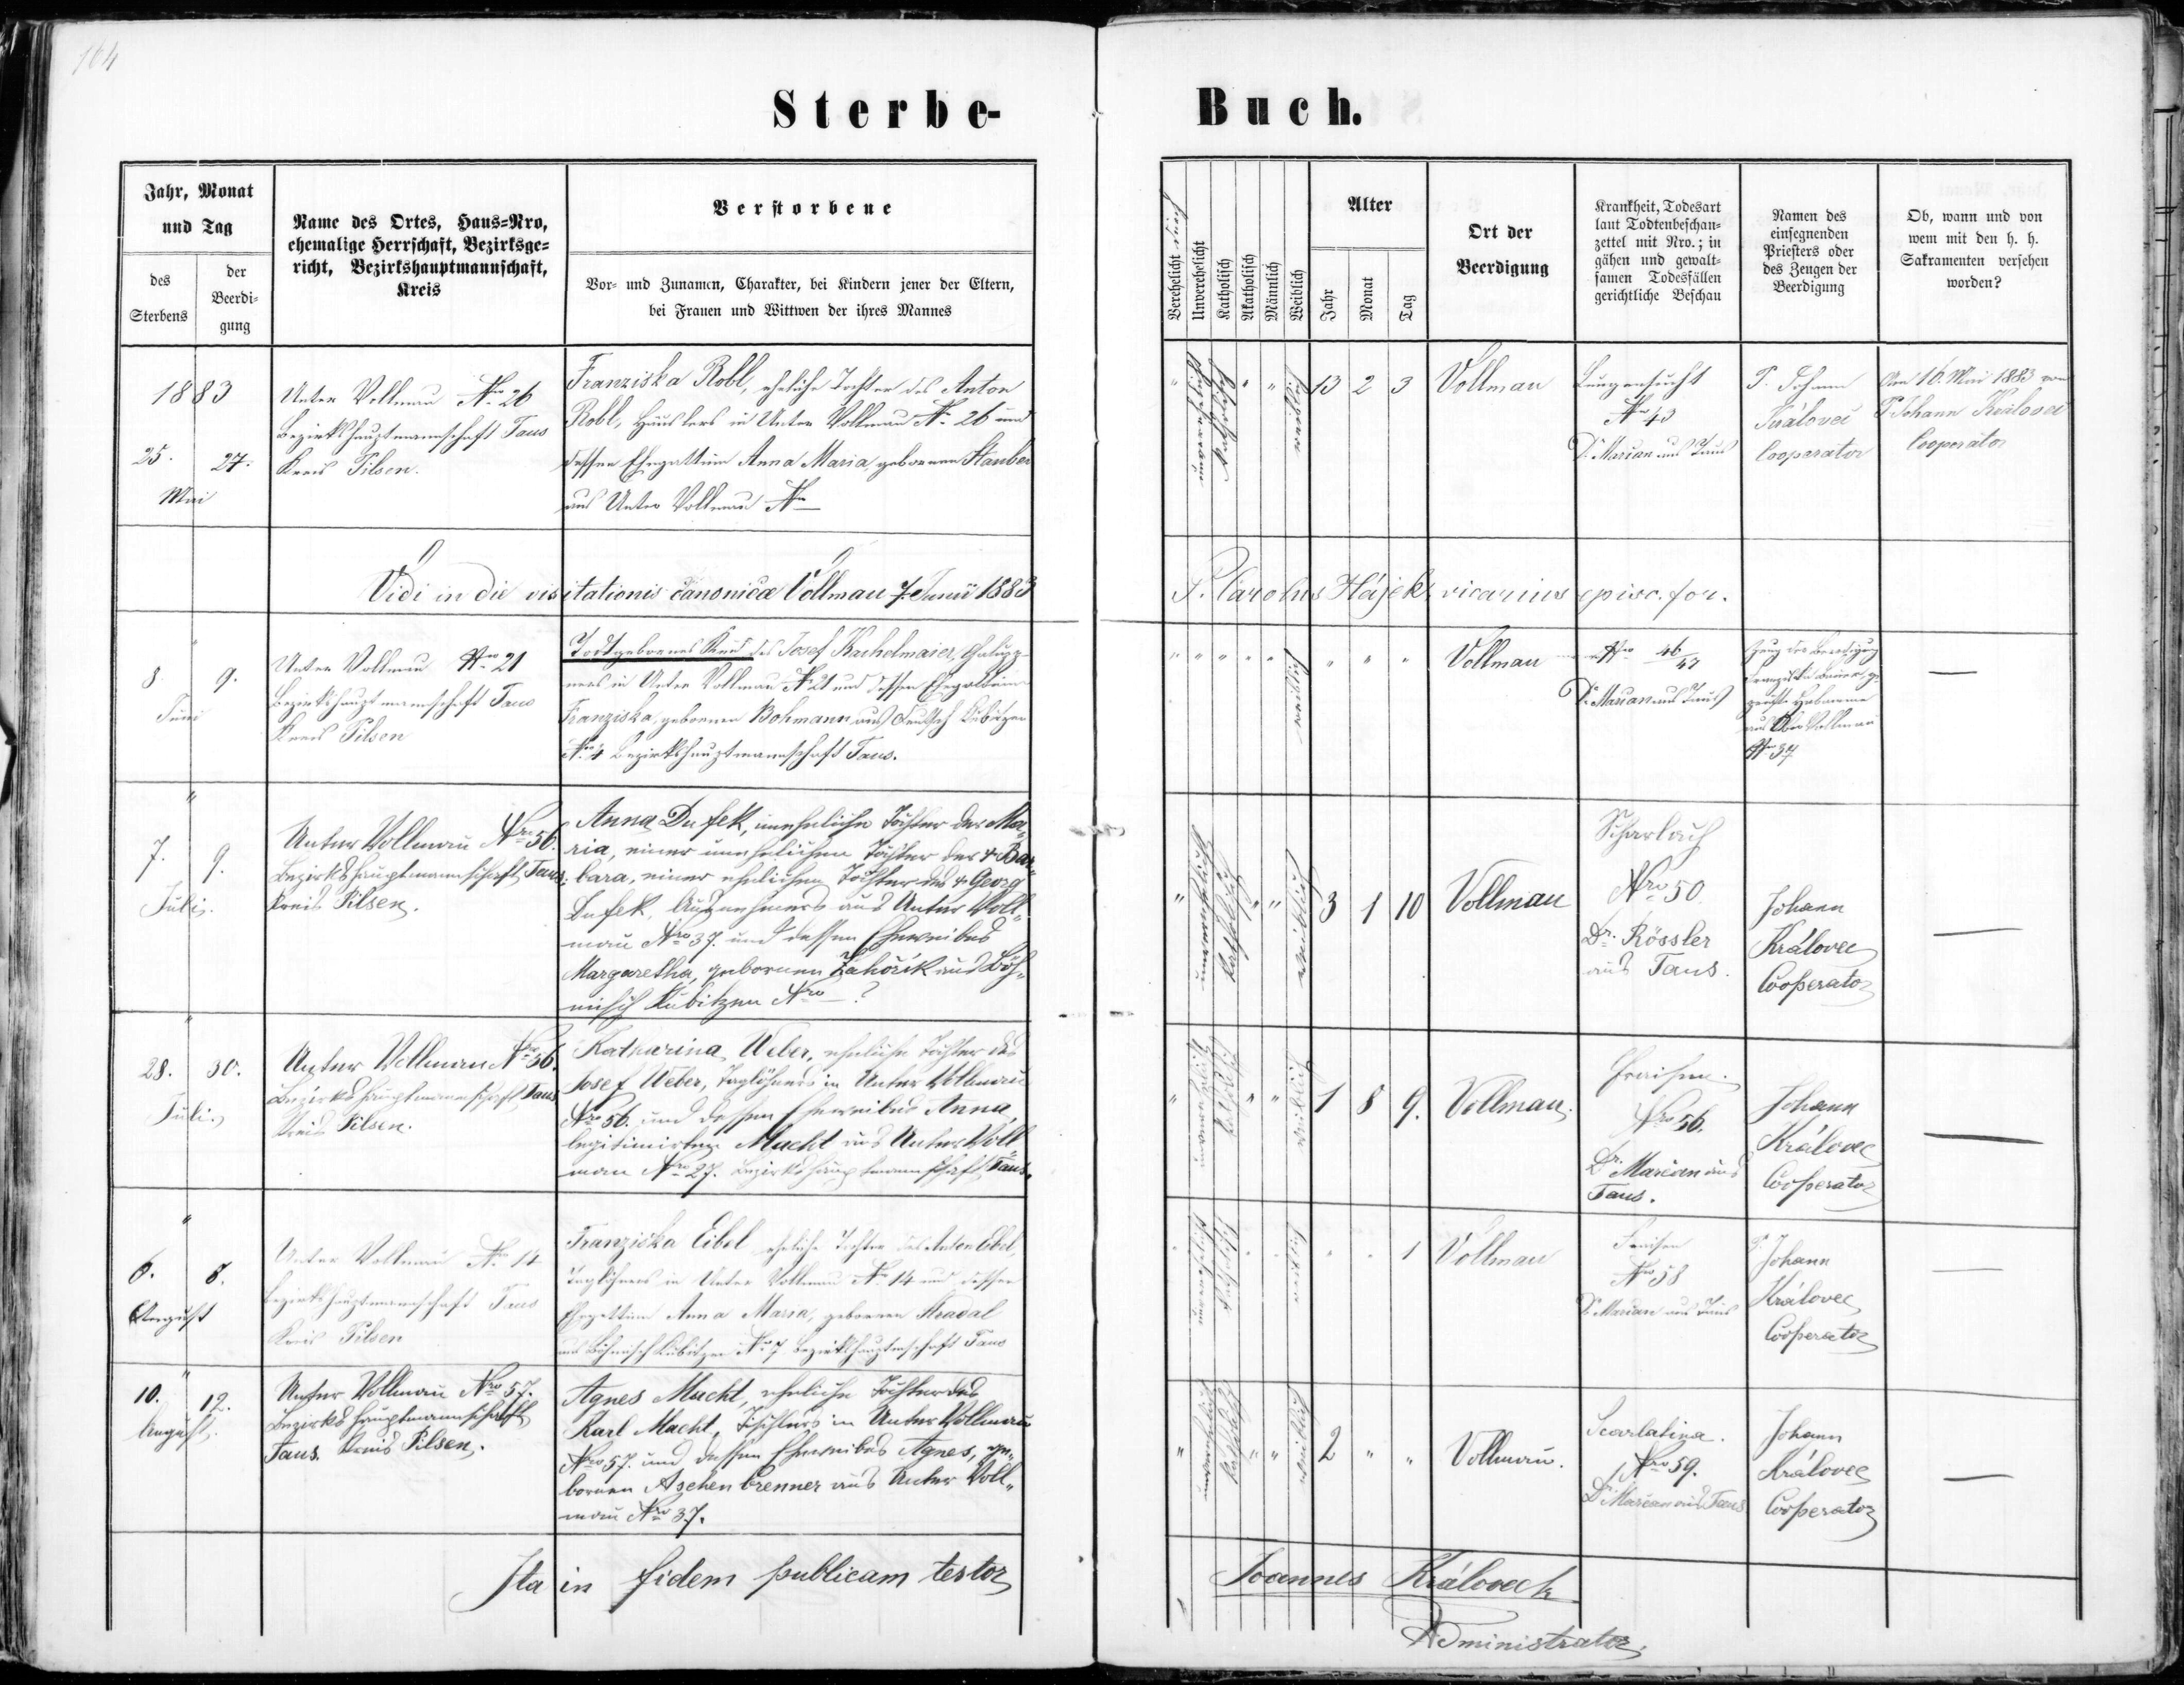 164
Sterbe-
Jahr, Monat
und Tag
des
Sterbens
der
Beerdi-
gung
Name des Ortes, Haus-Nro,
ehemalige Herrschaft, Bezirksge-
richt, Bezirkshauptmannschaft,
Kreis
Verstorbene
Vor- und Zunamen, Charakter, bei Kindern jener der Eltern,
bei Frauen und Wittwen der ihres Mannes
1883
25. 27.
Mai
Unter Vollmau Nro 26
Bezirkshauptmannschaft Taus
Kreis Pilsen.
Franziska Robl, eheliche Tochter des Anton
Robl, Häuslers in Unter Vollmau No. 26 und
dessen Ehegattin Anna Maria geborenen Stauber
aus Unter Vollmau Nro —
Vidi in die visitationis canonicæ Vollmau 7. Junii 1883
"
8 9.
Juni
Unter Vollmau Nro 21
Bezirkshauptmannschaft Taus
Kreis Pilsen
Todtgeborenes Kind des Josef Kachelmaier, Chalupp-
ners in Unter Vollmau No 21 und dessen Ehegattin
Franziska, geborenen Bohmann aus Deutsch Kubitzen
Nro 4 Bezirkshauptmannschaft Taus.
"
7. 9.
Juli.
Unter Vollmau Nro 56.
Bezirkshauptmannschaft Taus.
Kreis Pilsen.
Anna Dufek, uneheliche Tochter der Ma„
ria, einer unehelichen Tochter der + Bar„
bara, einer ehelichen Tochter des + Georg
Dufek, Ausnehmers aus Unter Voll„
mau Nro 37. und dessen Eheweibes
Margaretha, geborenen Záhořík aus Böh„
misch Kubitzen Nro —?
"
28. 30.
Juli.
Unter Vollmau Nro 56.
Bezirkshauptmannschaft Taus
Kreis Pilsen.
Katharina Weber, eheliche Tochter des
Josef Weber, Taglöhners in Unter Vollmau
Nro 56. und dessen Eheweibes Anna,
legitimirten Macht aus Unter Voll„
mau Nro 27. Bezirkshauptmannschaft Taus.
"
6. 8.
August
Unter Vollmau No. 14
Bezirkshauptmannschaft Taus
Kreis Pilsen
Franziska Eibel eheliche Tochter des Anton Eibel,
Taglöhners in Unter Vollmau Nro 14 und dessen
Ehegattin Anna Maria, geborenen
aus Böhmisch Kubitzen Nro 7 Bezirkshauptmschaft Taus
"
10. 12.
August.
Unter Vollmau Nro 57.
Bezirkshauptmannschaft
Taus. Kreis Pilsen.
Agnes Macht, eheliche Tochter des
Karl Macht, Tischlers in Unter Vollmau
Nro 57. und dessen Eheweibes Agnes, ge„
bornen Aschenbrenner aus Unter Voll„
mau Nro 37.
Ita in fidem publicam testor
Buch.
Verehelicht
Unverehelicht
Katholisch
Akatholisch
Männlich
Weiblich
Alter
Jahr
Monat
Tag
Ort der
Beerdigung
Krankheit, Todesart
laut Todtenbeschau-
zettel mit Nro.; in
gähen und gewalt-
samen Todesfällen
gerichtliche Beschau
Namen des
einsegnenden
Priesters oder
des Zeugen der
Beerdigung
Ob, wann und von
wem mit den h. h.
Sakramenten versehen
worden?
" unverehelicht Katholisch " " weiblich
13 2 3
Vollmau
Lungensucht
Nro 43
Dr. Marian aus Taus
P. Johann
Královec
Cooperator
Am 16. Mai 1883 von
P. Johann Královec
Cooperator
P. Carolus Hájek, vicarius episc. for.
" " " " " weiblich " " "
Vollmau
Nro 46/47
Dr. Marian aus Taus
Zeug der Beerdigung
aus Ober Vollmau
Nro 34
" unverehelicht katholisch " " weiblich
3 1 10
Vollmau
Scharlach
Nro 50.
Dr. Rössler
aus Taus.
Johann
Královec
Cooperator
—
" unverehelicht katholisch " " weiblich
1 8 9.
Vollmau.
Fraisen.
Nro 56.
Dr. Marian aus
Taus.
Johann
Královec
Cooperator
—
" unverehelicht katholisch " " weiblich
" " 1
Vollmau
Fraisen
Nro 58
Dr. Marian aus Taus
P. Johann
Královec
Cooperator
—
" unverehelicht katholisch " " weiblich
2 " "
Vollmau.
Scarlatina.
Nro 59.
Dr. Marian aus Taus
Johann
Královec
Cooperator
—
Joannes Královeck
Administrator.